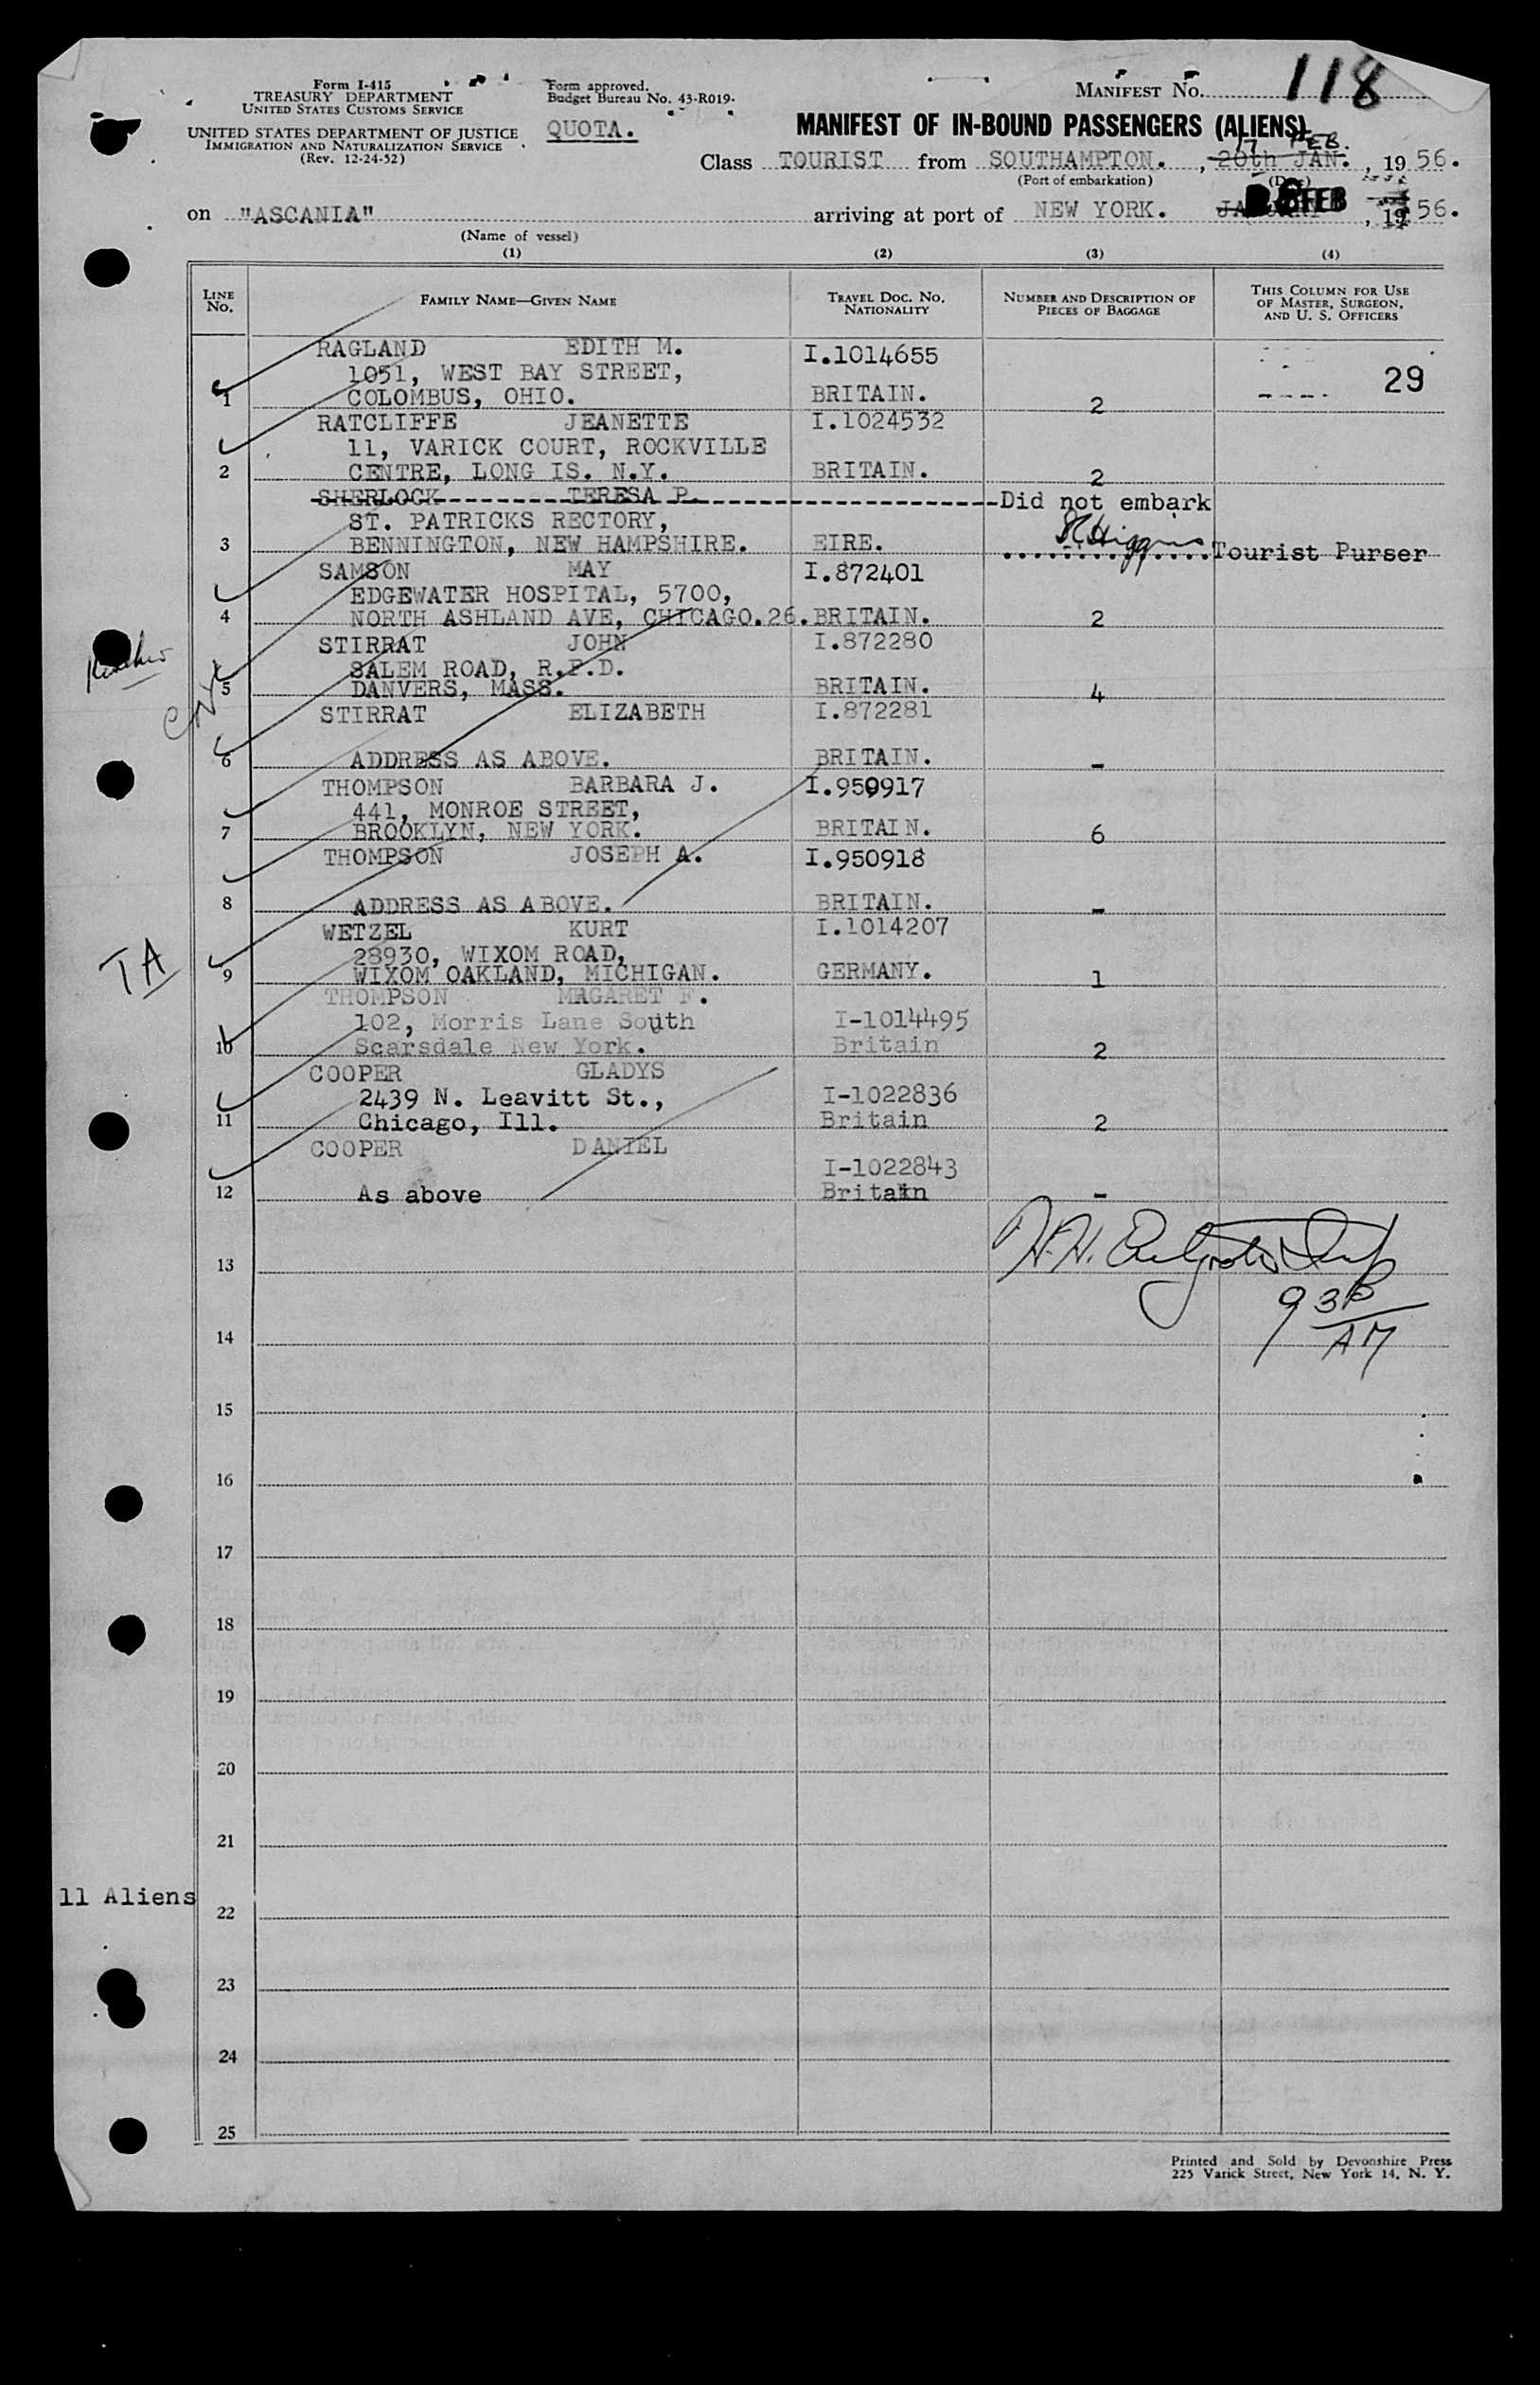 Form I-415
TREASURY DEPARTMENT
UNITED STATES CUSTOMS SERVICE
UNITED STATES DEPARTMENT OF JUSTICE
IMMIGRATION AND NATURALIZATION SERVICE
(Rev. 12-24-52)
Form approved.
Budget Bureau No. 43-R019.
QUOTA.
MANIFEST No. 118
MANIFEST OF IN-BOUND PASSENGERS (ALIENS)
17 FEB.
Class TOURIST from SOUTHAMPTON. , 20th JAN. , 19 56.
(Port of embarkation) (Date)
on "ASCANIA" arriving at port of NEW YORK. FEB , 19 56.
(Name of vessel)
(1) (2) (3) (4)
LINE No. FAMILY NAME—GIVEN NAME TRAVEL DOC. No. NATIONALITY NUMBER AND DESCRIPTION OF PIECES OF BAGGAGE THIS COLUMN FOR USE OF MASTER, SURGEON, AND U. S. OFFICERS
RAGLAND EDITH M. I.1014655
1051, WEST BAY STREET, 29
1 COLOMBUS, OHIO. BRITAIN. 2
RATCLIFFE JEANETTE I.1024532
11, VARICK COURT, ROCKVILLE
2 CENTRE, LONG IS. N.Y. BRITAIN. 2
SHERLOCK TERESA P. Did not embark
ST. PATRICKS RECTORY,
3 BENNINGTON, NEW HAMPSHIRE. EIRE. Higgins Tourist Purser
SAMSON MAY I.872401
EDGEWATER HOSPITAL, 5700,
4 NORTH ASHLAND AVE, CHICAGO.26. BRITAIN. 2
STIRRAT JOHN I.872280
SALEM ROAD, R.F.D.
5 DANVERS, MASS. BRITAIN. 4
STIRRAT ELIZABETH I.872281
6 ADDRESS AS ABOVE. BRITAIN. -
THOMPSON BARBARA J. I.950917
441, MONROE STREET,
7 BROOKLYN, NEW YORK. BRITAIN. 6
THOMPSON JOSEPH A. I.950918
8 ADDRESS AS ABOVE. BRITAIN. -
TA
WETZEL KURT I.1014207
28930, WIXOM ROAD,
9 WIXOM OAKLAND, MICHIGAN. GERMANY. 1
THOMPSON MRGARET F.
102, Morris Lane South I-1014495
10 Scarsdale New York. Britain 2
COOPER GLADYS
2439 N. Leavitt St., I-1022836
11 Chicago, Ill. Britain 2
COOPER DANIEL
I-1022843
12 As above Britain -
13
930
AM
14
15
16
17
18
19
20
21
11 Aliens
22
23
24
25
Printed and Sold by Devonshire Press
225 Varick Street, New York 14, N. Y.